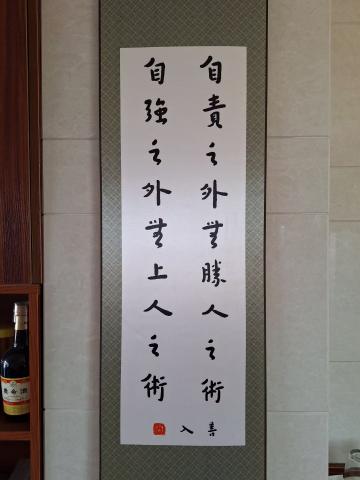 自責之外無勝人之術
自強之外無上人之術
善
入
養命酒